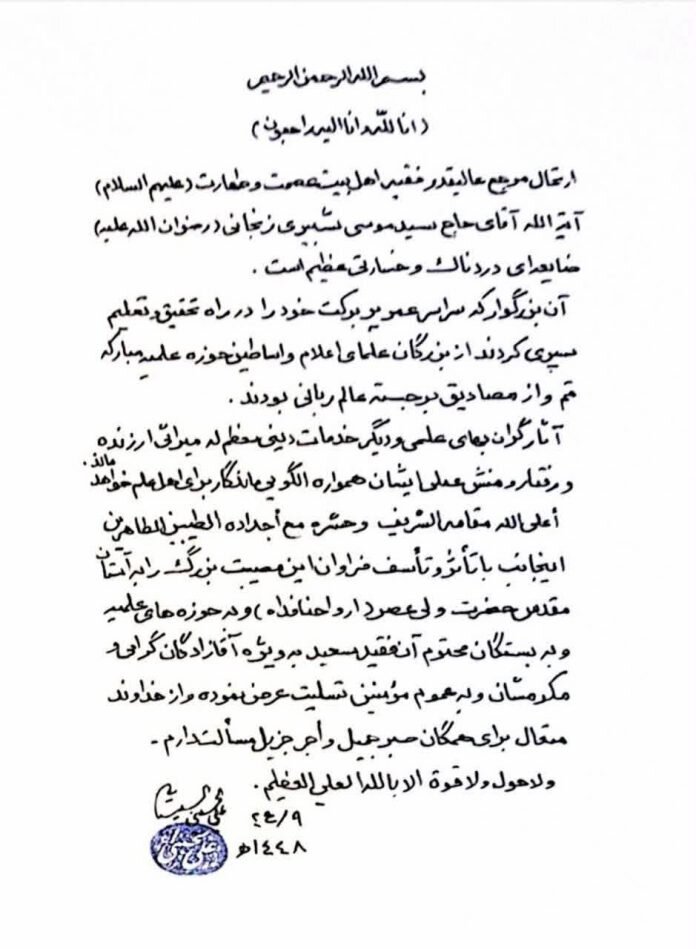 بسم الله الرحمن الرحیم
(انا لله وانا الیه راجعون)
ارتحال مرجع عالیقدر فقیه اهل بیت عصمت و طهارت (علیهم السلام)
آیة الله آقای حاج سید موسی شبیری زنجانی (رضوان الله علیه)
ضایعه‌ای دردناک و خسارتی عظیم است .
آن بزرگوار که سراسر عمر پر برکت خود را در راه تحقیق و تعلیم
سپری کردند از بزرگان علمای اعلام و اساطین حوزه علمیه مبارکه
قم و از مصادیق برجسته عالم ربانی بودند .
آثار گران بهای علمی و دیگر خدمات دینی معظم له میراثی ارزنده
و رفتار و منش عملی ایشان همواره الگویی ماندگار برای اهل علم خواهد ماند .
أعلی الله مقامه الشریف وحشره مع أجداده الطیبین الطاهرین
اینجانب با تأثر و تأسف فراوان این مصیبت بزرگ را به آستان
مقدس حضرت ولی عصر (ارواحنا فداه) و به حوزه های علمیه
و به بستگان محترم آن فقید سعید به ویژه آقازادگان گرامی و
مکرمشان و به عموم مؤمنین تسلیت عرض نموده و از خداوند
متعال برای همگان صبر جمیل و أجر جزیل مسألت دارم -
ولا حول ولا قوة الا بالله العلي العظيم .
علي الحسيني السيستاني
٢٤/٩
١٤٤٨هـ